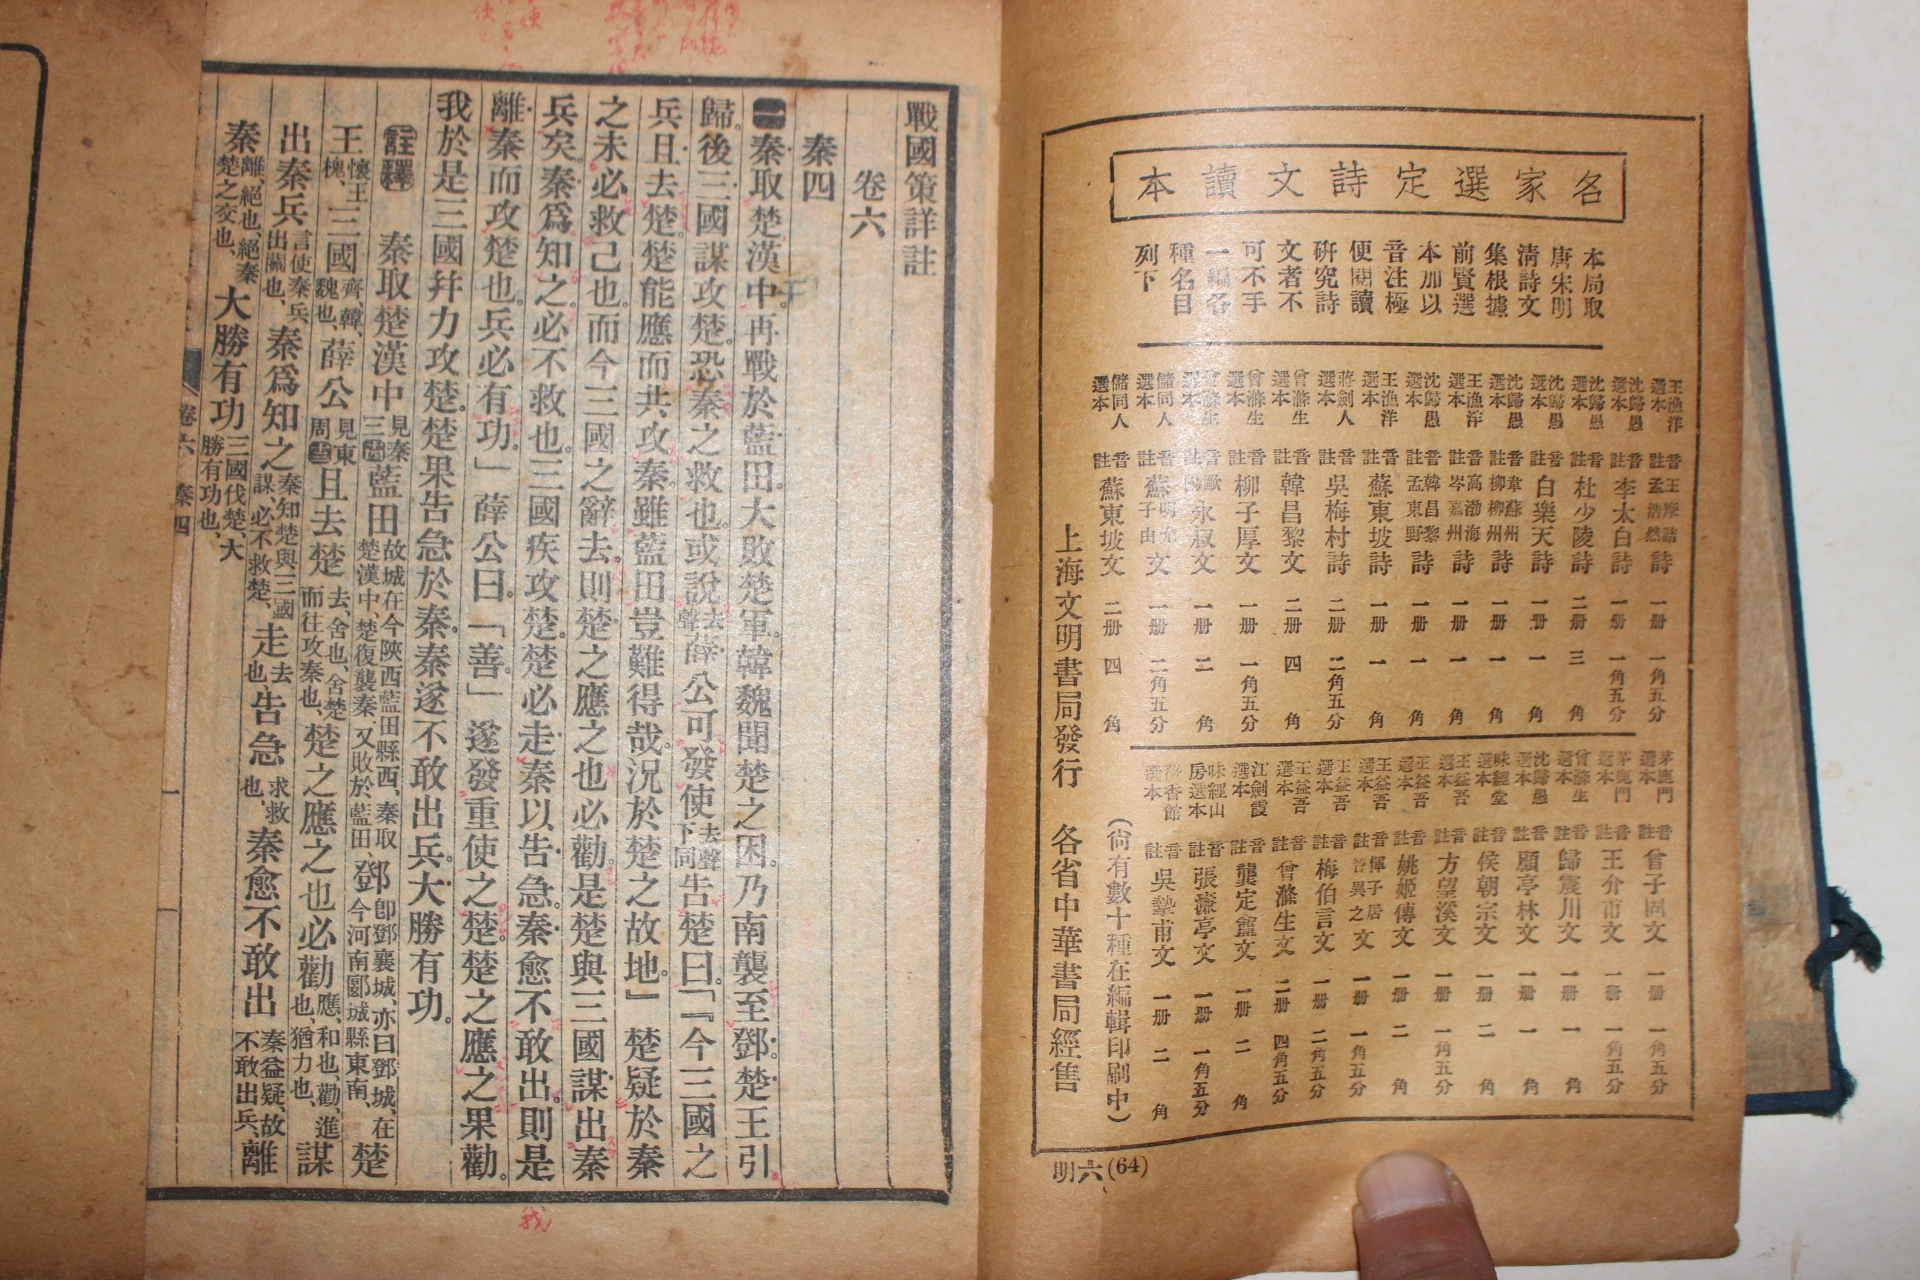 名家選定詩文讀本
本局取
唐宋明
清詩文
集根據
前賢選
本加以
音注極
便閱讀
研究詩
文者不
可不手
一編各
種名目
列下
王漁洋選本 音註 王摩詰 孟浩然 詩 一册 一角五分
沈歸愚選本 音註 李太白詩 一册 一角五分
沈歸愚選本 音註 杜少陵詩 二册 三角
沈歸愚選本 音註 白樂天詩 一册 一角
沈歸愚選本 音註 韋蘇州 柳柳州 詩 一册 一角
王漁洋選本 音註 高渤海 岑嘉州 詩 一册 一角
沈歸愚選本 音註 韓昌黎 孟東野 詩 一册 一角
王漁洋選本 音註 蘇東坡詩 一册 一角
蔣劍人選本 音註 吳梅村詩 二册 二角五分
曾滌生選本 音註 韓昌黎文 二册 四角
曾滌生選本 音註 柳子厚文 一册 一角五分
曾滌生選本 音註 歐陽永叔文 一册 二角
儲同人選本 音註 蘇明允 子由 文 一册 二角五分
儲同人選本 音註 蘇東坡文 二册 四角
茅鹿門選本 音註 曾子固文 一册 一角五分
茅鹿門選本 音註 王介甫文 一册 一角五分
曾滌生選本 音註 歸震川文 一册 一角
沈歸愚選本 音註 顧亭林文 一册 一角
味經堂選本 音註 侯朝宗文 一册 二角
王益吾選本 音註 方望溪文 一册 一角五分
王益吾選本 音註 姚姬傳文 一册 二角
王益吾選本 音註 惲子居 管異之 文 一册 一角五分
王益吾選本 音註 梅伯言文 一册 二角五分
王益吾選本 音註 曾滌生文 二册 四角五分
江劍霞選本 音註 龔定盦文 一册 二角
味經山房選本 音註 張濂亭文 一册 一角五分
香館選本 音註 吳摯甫文 一册 二角
(尙有數十種在編輯印刷中)
上海文明書局發行 各省中華書局經售
明六(64)
戰國策詳註
卷六
秦四
一 秦取楚漢中。再戰於藍田。大敗楚軍。韓魏聞楚之困。乃南襲至鄧。楚王引
歸。後三國謀攻楚。恐秦之救也。或說去聲薛公可發使去聲下同告楚曰。「『今三國之
兵且去楚。楚能應而共攻秦。雖藍田豈難得哉。況於楚之故地。』楚疑於秦
之未必救己也。而今三國之辭去。則楚之應之也必勸。是楚與三國謀出秦
兵矣。秦爲知之。必不救也。三國疾攻楚。楚必走秦以告急。秦愈不敢出。則是
離秦而攻楚也。兵必有功。」薛公曰。「善。」遂發重使之楚。楚之應之果勸。
我於是三國幷力攻楚。楚果告急於秦。秦遂不敢出兵。大勝有功。
註釋 秦取楚漢中見秦三藍田故城在今陝西藍田縣西、秦取楚漢中、楚復襲秦、又敗於藍田、鄧卽鄧襄城、亦曰鄧城、在今河南郾城縣東南、楚
王懷王槐、三國齊、韓、魏也、薛公見東周且去楚去、舍也、舍楚而往攻秦也、楚之應之也必勸應、和也、勸、進也、猶力也、謀
出秦兵言使秦兵出關也、秦爲知之秦知楚與三國謀、必不救楚、走去也告急求救也、秦愈不敢出秦益疑、故不敢出兵、離
秦離、絕也、絕秦楚之交也、大勝有功三國伐楚、大勝有功也、
卷六 秦四
一
我